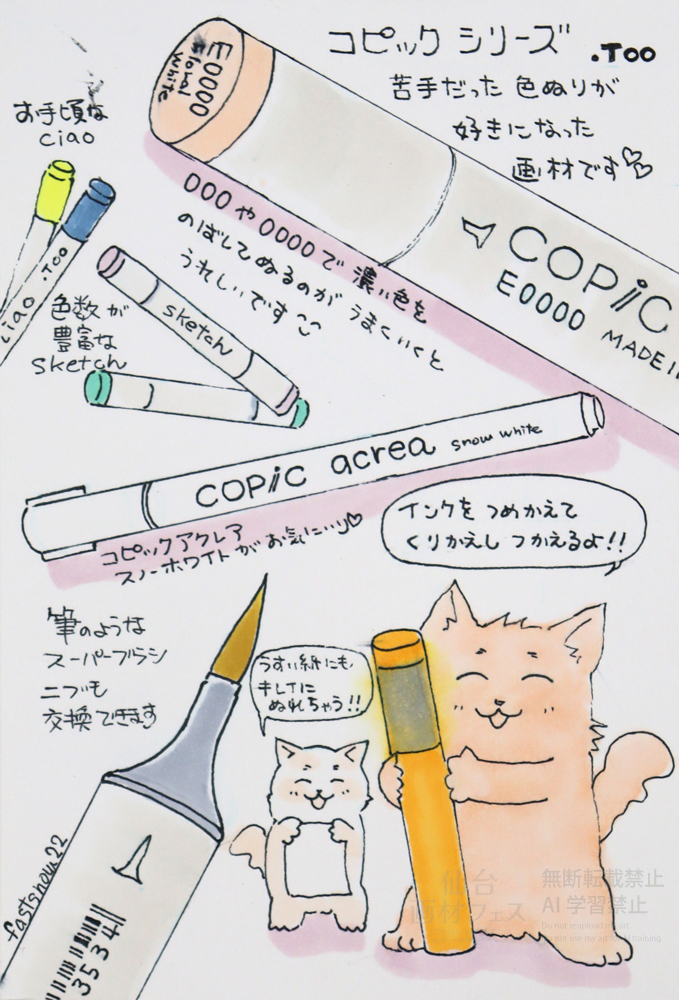 コピック シリーズ .Too
苦手だった 色ぬりが
好きになった
画材です♡♡
E0000
Floral
White
お手頃な
ciao
ciao .TOO
000 や 0000 で 濃い色を
のばしてぬるのが うまくいくと
うれしいです
COPiC
E0000 MADE IN
色数が
豊富な
sketch
sketch
COPiC acrea snow white
コピックアクレア
スノーホワイトが お気に入り♡
インクを つめかえて
くりかえし つかえるよ!!
筆のような
スーパーブラシ
ニブも
交換できます
うすい紙にも
キレイに
ぬれちゃう!!
fastsnow22
3534
仙台
画材フェス
無断転載禁止
AI 学習禁止
Do not repload my art.
Do not use my art for AI training.